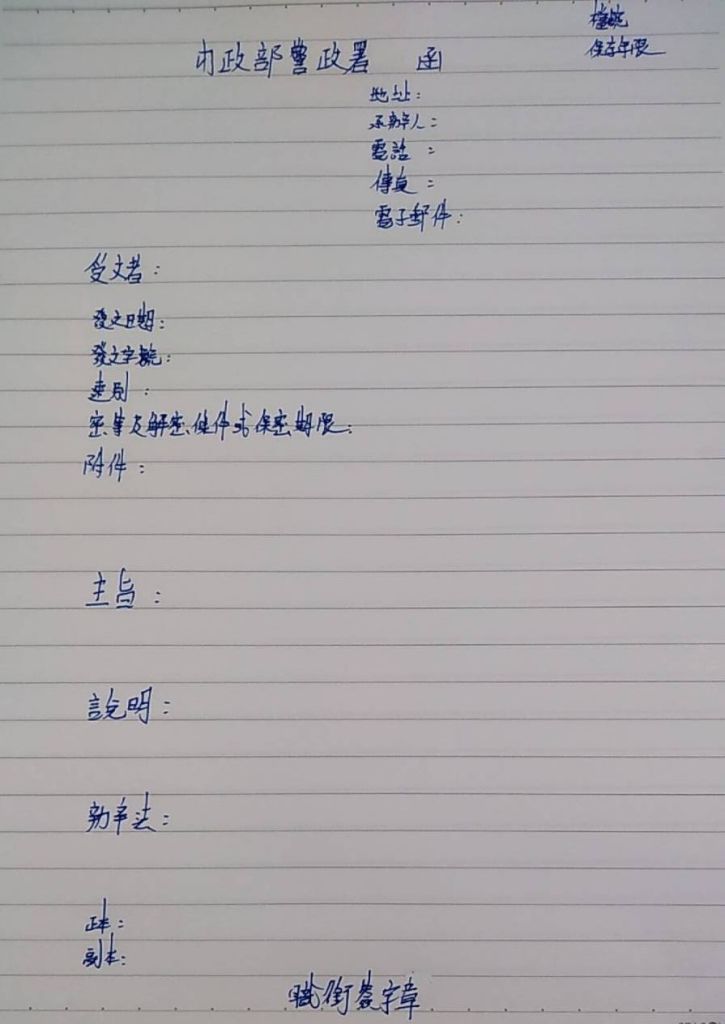 檔號
保存年限
內政部警政署 函
地址：
承辦人：
電話：
傳真：
電子郵件：
受文者：
發文日期：
發文字號：
速別：
密等及解密條件或保密期限：
附件：
主旨：
說明：
辦法：
正本：
副本：
職銜簽字章